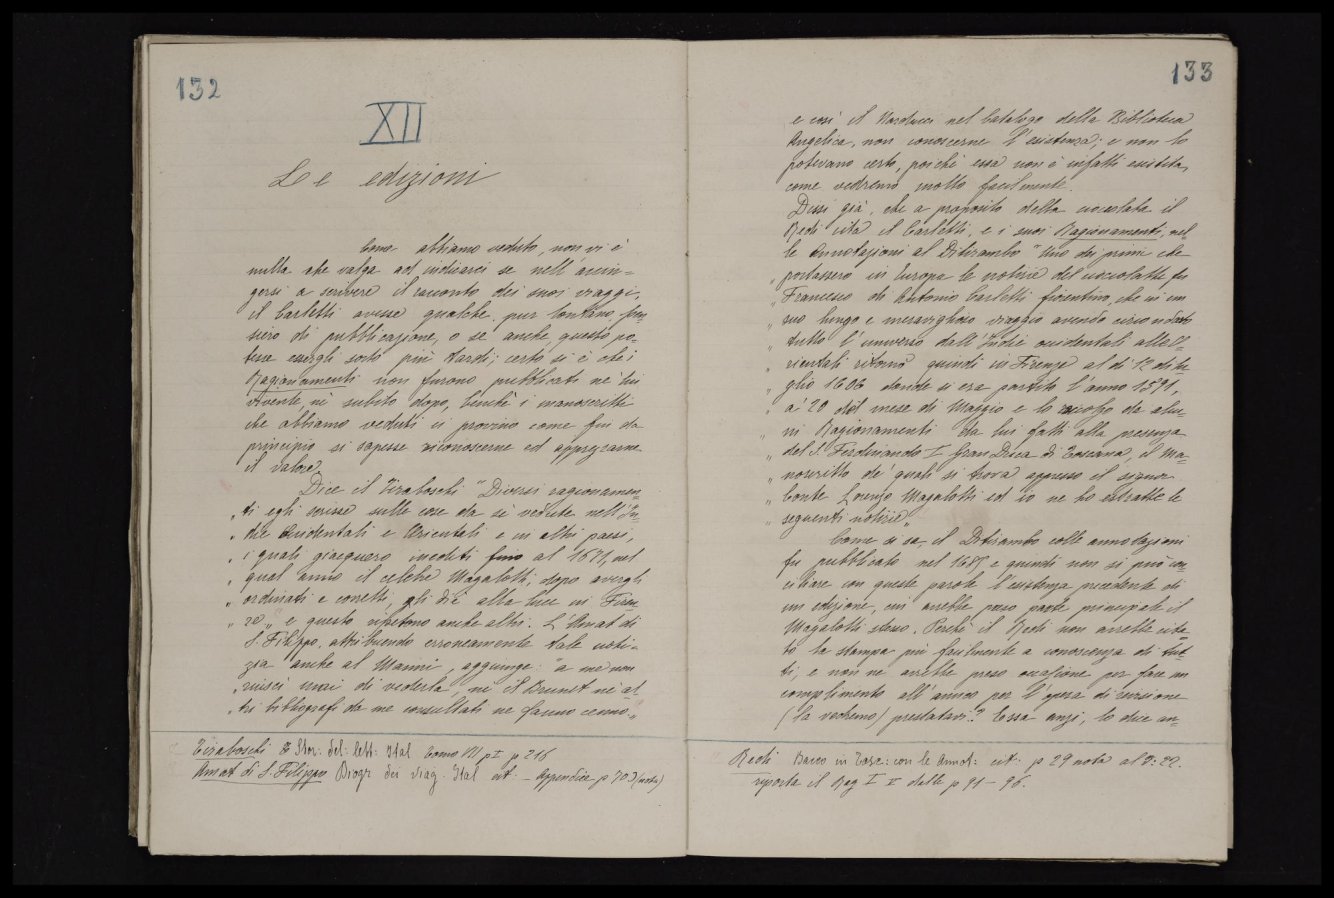 132
XII
Le edizioni
Come abbiamo veduto, non vi è
nulla che valga ad indicarci se nell'accin-
gersi a scrivere il racconto dei suoi viaggi,
il Carletti avesse qualche pur lontano pen-
siero di pubblicazione, o se anche questo po-
tesse essergli sorto più tardi; certo si è che i
Ragionamenti non furono pubblicati nè lui
vivente nè subito dopo, benchè i manoscritti
che abbiamo veduti ci provino come fin da
principio si sapesse riconoscerne ed apprezzarne
il valore.
Dice il Tiraboschi "Diversi ragionamen-
„ ti egli scrisse sulle cose da sè vedute nell'In-
„ die Occidentali e Orientali e in altri paesi,
„ i quali giacquero inediti fino al 1671, nel
„ qual anno il celebre Magalotti, dopo avergli
„ ordinati e corretti, gli diè alla luce in Firen-
„ ze „ e questo ripetono anche altri. L'Amat di
S. Filippo, attribuendo erroneamente tale noti-
zia anche al Manni, aggiunge: "a me non
„ riuscì mai di vederla, nè il Brunet nè al-
„ tri bibliografi da me consultati ne fanno cenno „
Tiraboschi Stor: del: lett: Ital Tomo VIII p I p 216
Amat di S. Filippo Biogr dei viag: Ital cit. - Appendice p 703 (nota)
133
e così il Narducci nel Catalogo della Biblioteca
Angelica, non conoscerne l'esistenza; e non lo
potevano certo, poichè essa non è infatti esistita,
come vedremo molto facilmente.
Dissi già, che a proposito della cioccolata il
Redi cita il Carletti, e i suoi Ragionamenti, nel-
le Annotazioni al Ditirambo "Uno dei primi che
„ portassero in Europa le notizie del cioccolatte fu
„ Francesco di Antonio Carletti fiorentino, che in un
„ suo lungo e meraviglioso viaggio avendo circondato
„ tutto l'universo dall'Indie occidentali all'o-
„ rientali ritornò quindi in Firenze al dì 12 di lu-
„ glio 1606 donde si era partito l'anno 1591,
„ a' 20 del mese di Maggio e lo raccolgo da alcu-
„ ni Ragionamenti da lui fatti alla presenza
„ del S. Ferdinando I Gran Duca di Toscana, il Ma-
„ noscritto de' quali si trova appresso il signor
„ Conte Lorenzo Magalotti ed io ne ho estratte le
„ seguenti notizie „
Come si sa, il Ditirambo colle annotazioni
fu pubblicato nel 1685 e quindi non si può con-
ciliare con queste parole l'esistenza precedente di
un edizione, cui avrebbe preso parte principale il
Magalotti stesso. Perchè il Redi non avrebbe cita-
to la stampa più facilmente a conoscenza di tut-
ti, e non ne avrebbe preso occasione per fare un
complimento all'amico per l'opera di revisione
(la vedremo) prestatavi? Essa anzi, lo dice an-
Redi Bacco in Tosc: con le Annot: cit: p 29 nota al v: 22.
riporta il Rag I II dalle p 91 - 96.